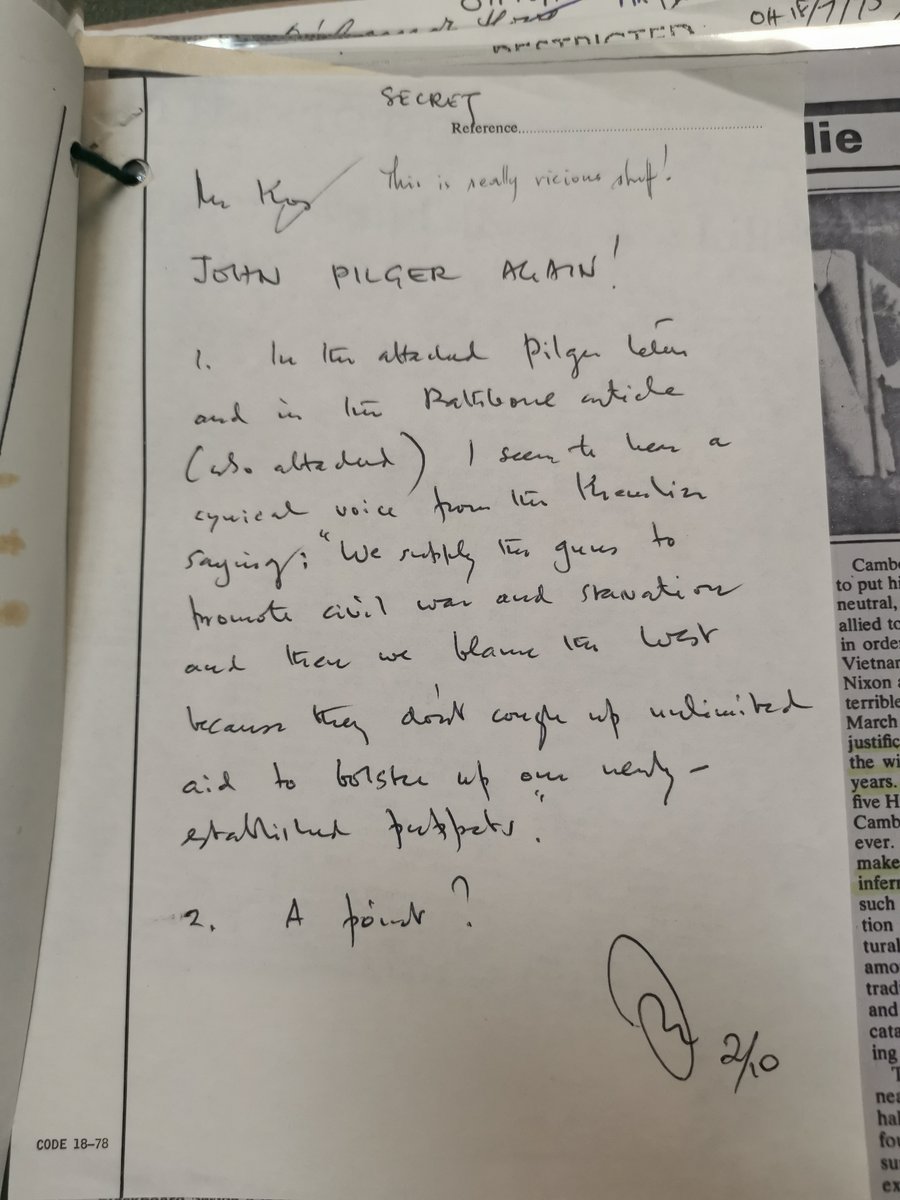 OH 18/7/
RESTRICTED
SECRET
Reference
Mr
This is really vicious stuff!
JOHN PILGER AGAIN!
1. In the attached Pilger letter
and in the Rathbone article
(also attached) I seem to hear a
cynical voice from the Kremlin
saying: "We supply the guns to
promote civil war and starvation
and then we blame the West
because they don't cough up unlimited
aid to bolster up our newly-
established puppets".
2. A point?
2/10
CODE 18-78
lie
Cambo
to put hi
neutral,
allied to
in orde
Vietnam
Nixon a
terrible
March
justific
the wi
years.
five H
Camb
ever.
make
infern
such
tion
tural
amo
trad
and
cata
ing
T
nea
hal
fou
su
ex